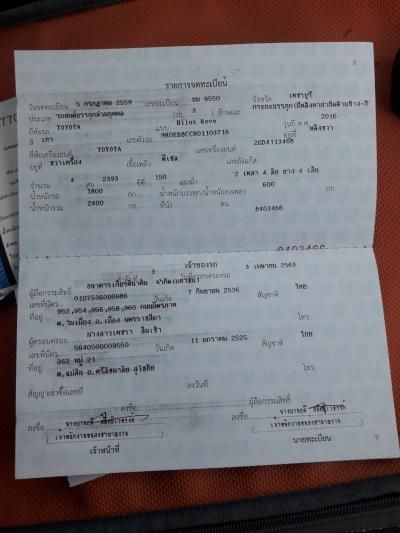 8
รายการจดทะเบียน
วันจดทะเบียน 5 กรกฎาคม 2559 เลขทะเบียน ขม 9550 จังหวัด เพชรบุรี
ประเภท รถยนต์บรรทุกส่วนบุคคล (รย. 3) ลักษณะ กระบะบรรทุก
ยี่ห้อรถ TOYOTA แบบ Hilux Revo รุ่นปี ค.ศ. 2016
สี เทา เลขตัวรถ MR0EB8CC801103716 อยู่ที่ หลังขวา
ยี่ห้อเครื่องยนต์ TOYOTA เลขเครื่องยนต์ 2GD4113468
อยู่ที่ ขวาเครื่อง เชื้อเพลิง ดีเซล เลขถังแก๊ส
จำนวน 4 สูบ 2393 ซีซี 150 แรงม้า 2 เพลา 4 ล้อ ยาง 4 เส้น
น้ำหนักรถ 1800 กก. น้ำหนักบรรทุก/น้ำหนักลงเพลา 600 กก.
น้ำหนักรวม 2400 กก. ที่นั่ง คน 8403466
เจ้าของรถ
3 วันที่ครอบครองรถ 3 เมษายน 2563
ผู้ถือกรรมสิทธิ์ ธนาคารเกียรตินาคิน จำกัด(มหาชน)
เลขที่บัตร 0107536000986 วันเกิด 7 กันยายน 2536 สัญชาติ ไทย
ที่อยู่ 952,954,956,958,960 ถนนมิตรภาพ
ต.ในเมือง อ.เมือง นครราชสีมา โทร.
ผู้ครอบครอง นางสาวเพชรา
เลขที่บัตร 5640500009550 วันเกิด 11 มกราคม 2525 สัญชาติ ไทย
ที่อยู่ 362 หมู่ 21
ต.แม่สิน อ.ศรีสัชนาลัย สุโขทัย โทร.
สัญญาเช่าซื้อเลขที่ ลงวันที่
ลงชื่อ ผู้ถือกรรมสิทธิ์
ลงชื่อ ลงชื่อ
เจ้าหน้าที่ นายทะเบียน
9